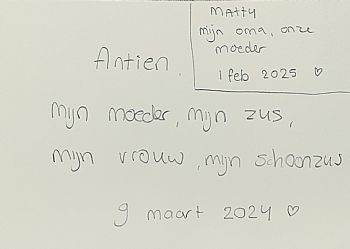 Matty
mijn oma, onze
moeder
1 feb 2025 ♡
Antien.
Mijn moeder, mijn zus,
mijn vrouw, mijn schoonzus
9 maart 2024 ♡